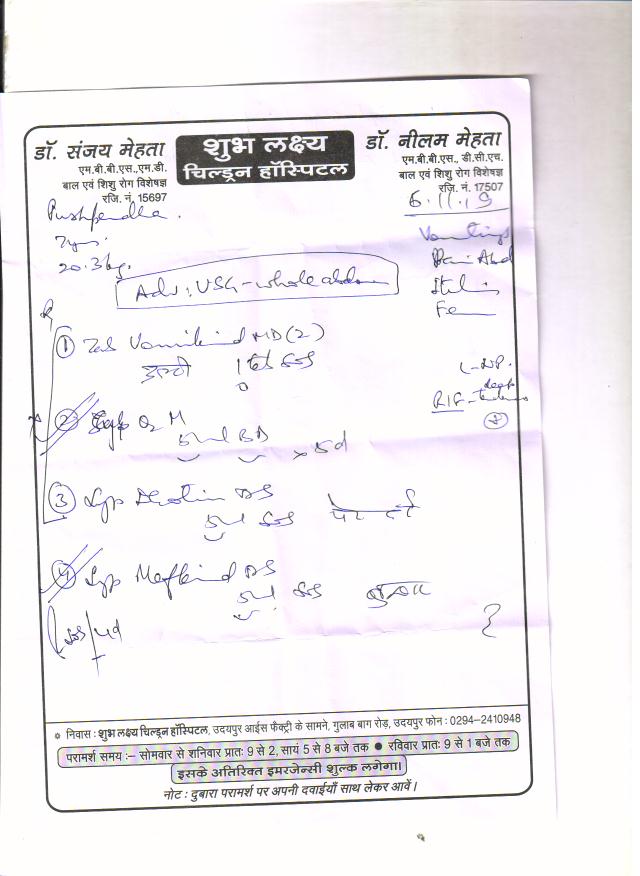 शुभ लक्ष्य
चिल्ड्रन हॉस्पिटल
डॉ. संजय मेहता
एम.बी.बी.एस.,एम.डी.
बाल एवं शिशु रोग विशेषज्ञ
रजि. नं. 15697
डॉ. नीलम मेहता
एम.बी.बी.एस., डी.सी.एच.
बाल एवं शिशु रोग विशेषज्ञ
रजि. नं. 17507
Pushpendra
6.11.19
7yrs.
20.3kg.
Vomiting
Pain Abd
Adv: USG-whole abdomen
① Tab Vomikind MD (2)
उल्टी 1 tab SOS
RIF-
② Syp O2 M
5ml BD x 5d
③ Syp DS
5ml SOS पेट दर्द
④ Syp Mefkind DS
5ml SOS बुखार
निवास : शुभ लक्ष्य चिल्ड्रन हॉस्पिटल, उदयपुर आईस फैक्ट्री के सामने, गुलाब बाग रोड़, उदयपुर फोन : 0294-2410948
परामर्श समय :– सोमवार से शनिवार प्रातः 9 से 2, सायं 5 से 8 बजे तक ● रविवार प्रातः 9 से 1 बजे तक
इसके अतिरिक्त इमरजेन्सी शुल्क लगेगा।
नोट : दुबारा परामर्श पर अपनी दवाईयाँ साथ लेकर आवें।